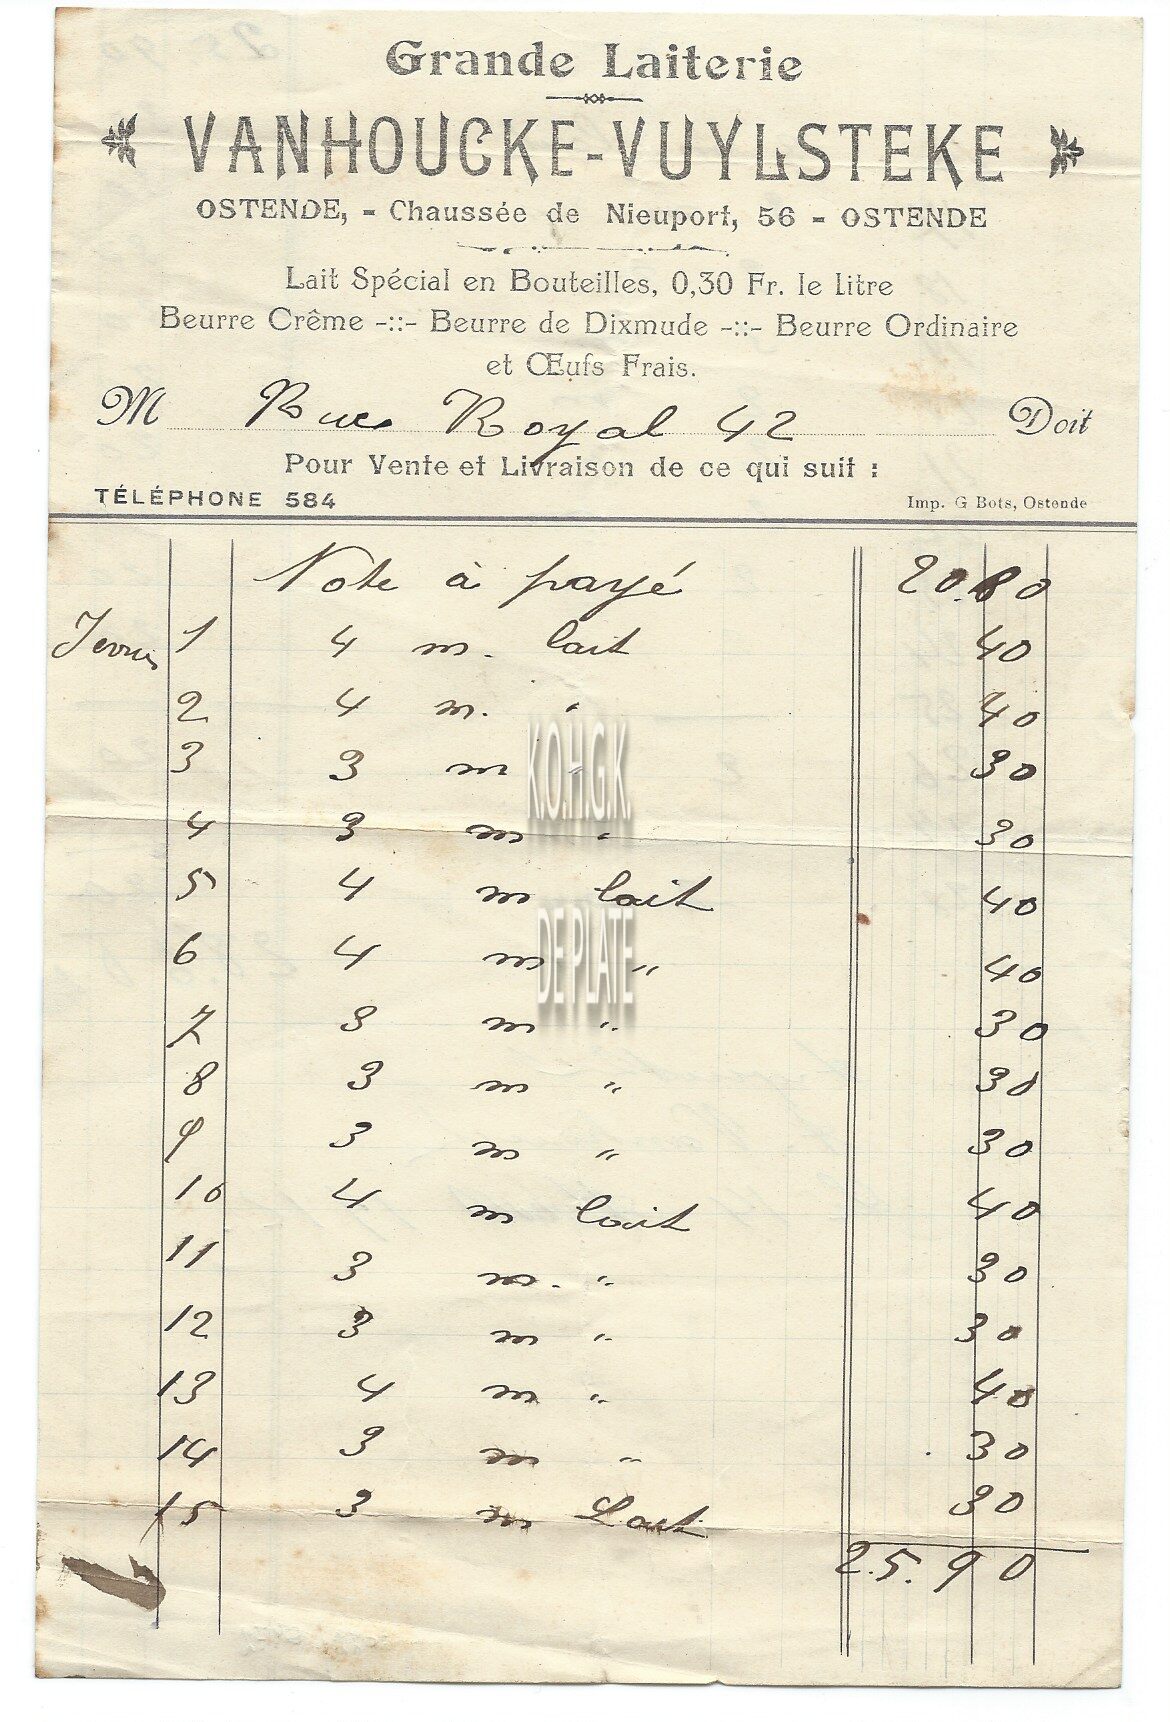 Grande Laiterie
VANHOUCKE-VUYLSTEKE
OSTENDE, - Chaussée de Nieuport, 56 - OSTENDE
Lait Spécial en Bouteilles, 0,30 Fr. le litre
Beurre Crême -::- Beurre de Dixmude -::- Beurre Ordinaire
et Œufs Frais.
M Rue Royal 42 Doit
Pour Vente et Livraison de ce qui suit :
TÉLÉPHONE 584 Imp. G Bots, Ostende
Note à payé 20.80
1 4 m. lait 40
2 4 m. " 40
3 3 m " 30
K.O.H.G.K.
4 3 m " 30
5 4 m lait 40
DE PLATE
6 4 m " 40
7 3 m " 30
8 3 m " 30
9 3 m " 30
10 4 m lait 40
11 3 m. " 30
12 3 m " 30
13 4 m " 40
14 3 m " 30
15 3 m Lait 30
25.90